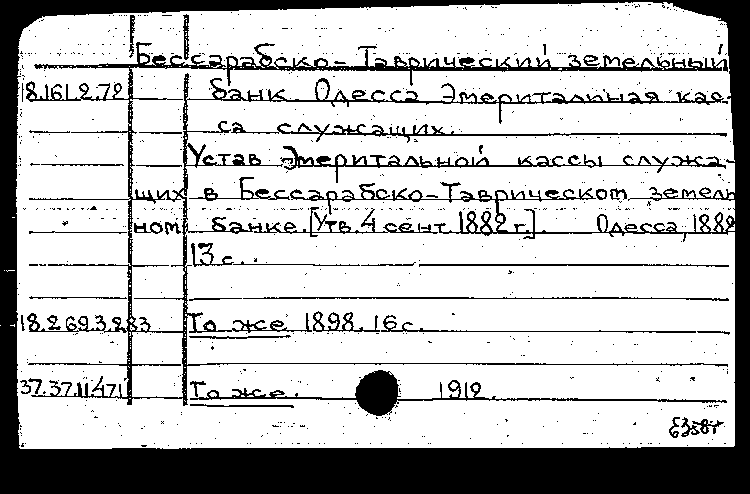 Бессарабско-Таврический земельный
18.161.2.72 банк. Одесса. Эмеритальная кас-
са служащих.
Устав Эмеритальной кассы служа-
щих в Бессарабско-Таврическом земель
ном банке. [Утв. 4 сент. 1882 г.]. Одесса, 1882
13 с.
18.269.3.283 То же 1898. 16 с.
37.37.11.471 То же. 1912.